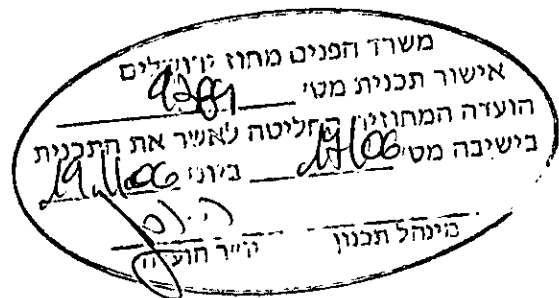 משרד הפנים מחוז ירושלים
אישור תכנית מס'
הועדה המחוזית החליטה לאשר את התכנית
בישיבה מס' 17/06 ביום 19.11.06
מינהל תכנון יו"ר הועדה